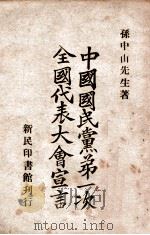 孫中山先生著
中國國民黨第一次
全國代表大會宣言
新民印書館刊行